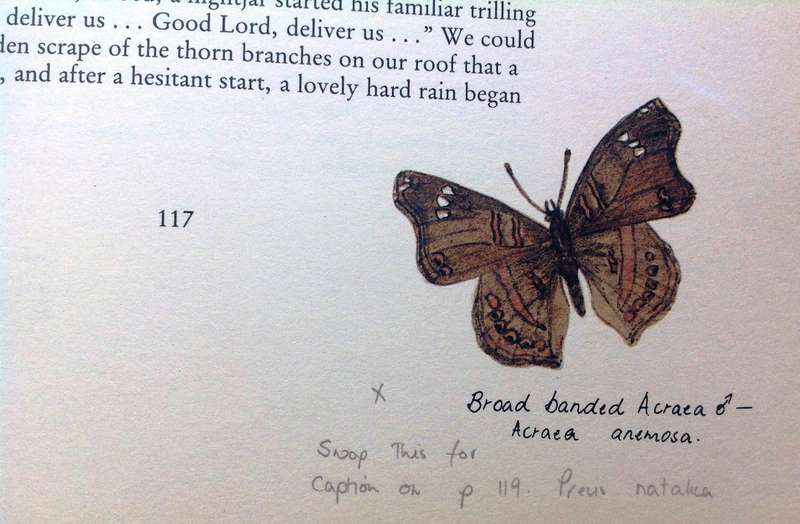 a nightjar started his familiar trilling
deliver us . . . Good Lord, deliver us . . .” We could
den scrape of the thorn branches on our roof that a
, and after a hesitant start, a lovely hard rain began
117
x
Broad banded Acraea ♂ —
Acraea anemosa.
Swop This for
Caption on p 119. Precis natalica